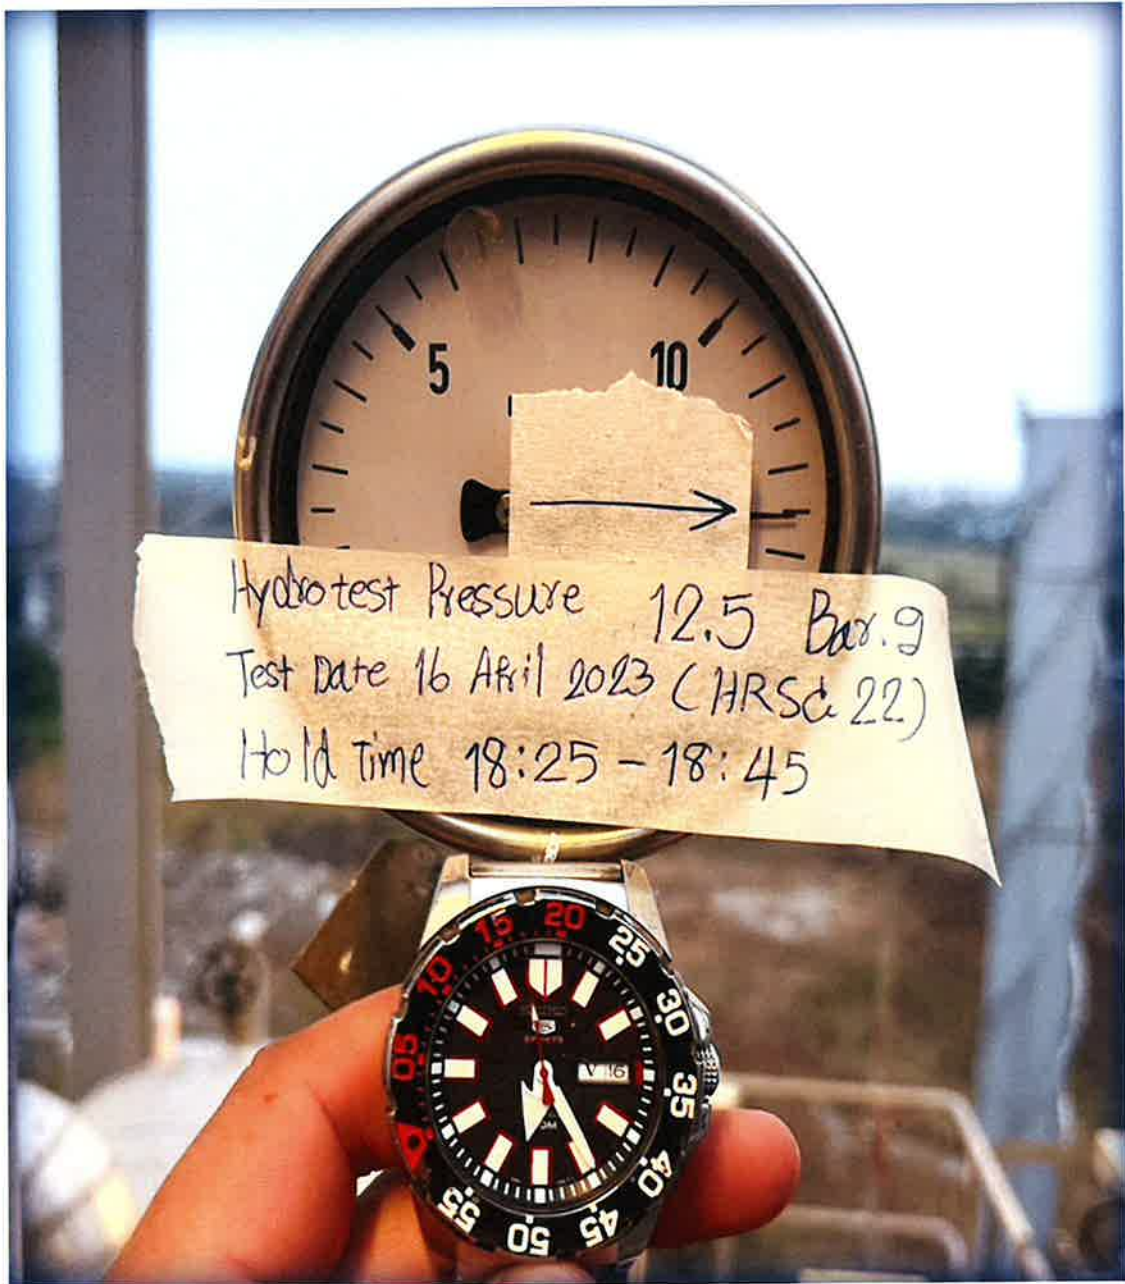 5
10
Hydrotest Pressure 12.5 Bar.g
Test Date 16 April 2023 (HRSG 22)
Hold Time 18:25 - 18:45
05 10 15 20 25 30 35 40 45 50 55
SEIKO
5
SPORTS
16